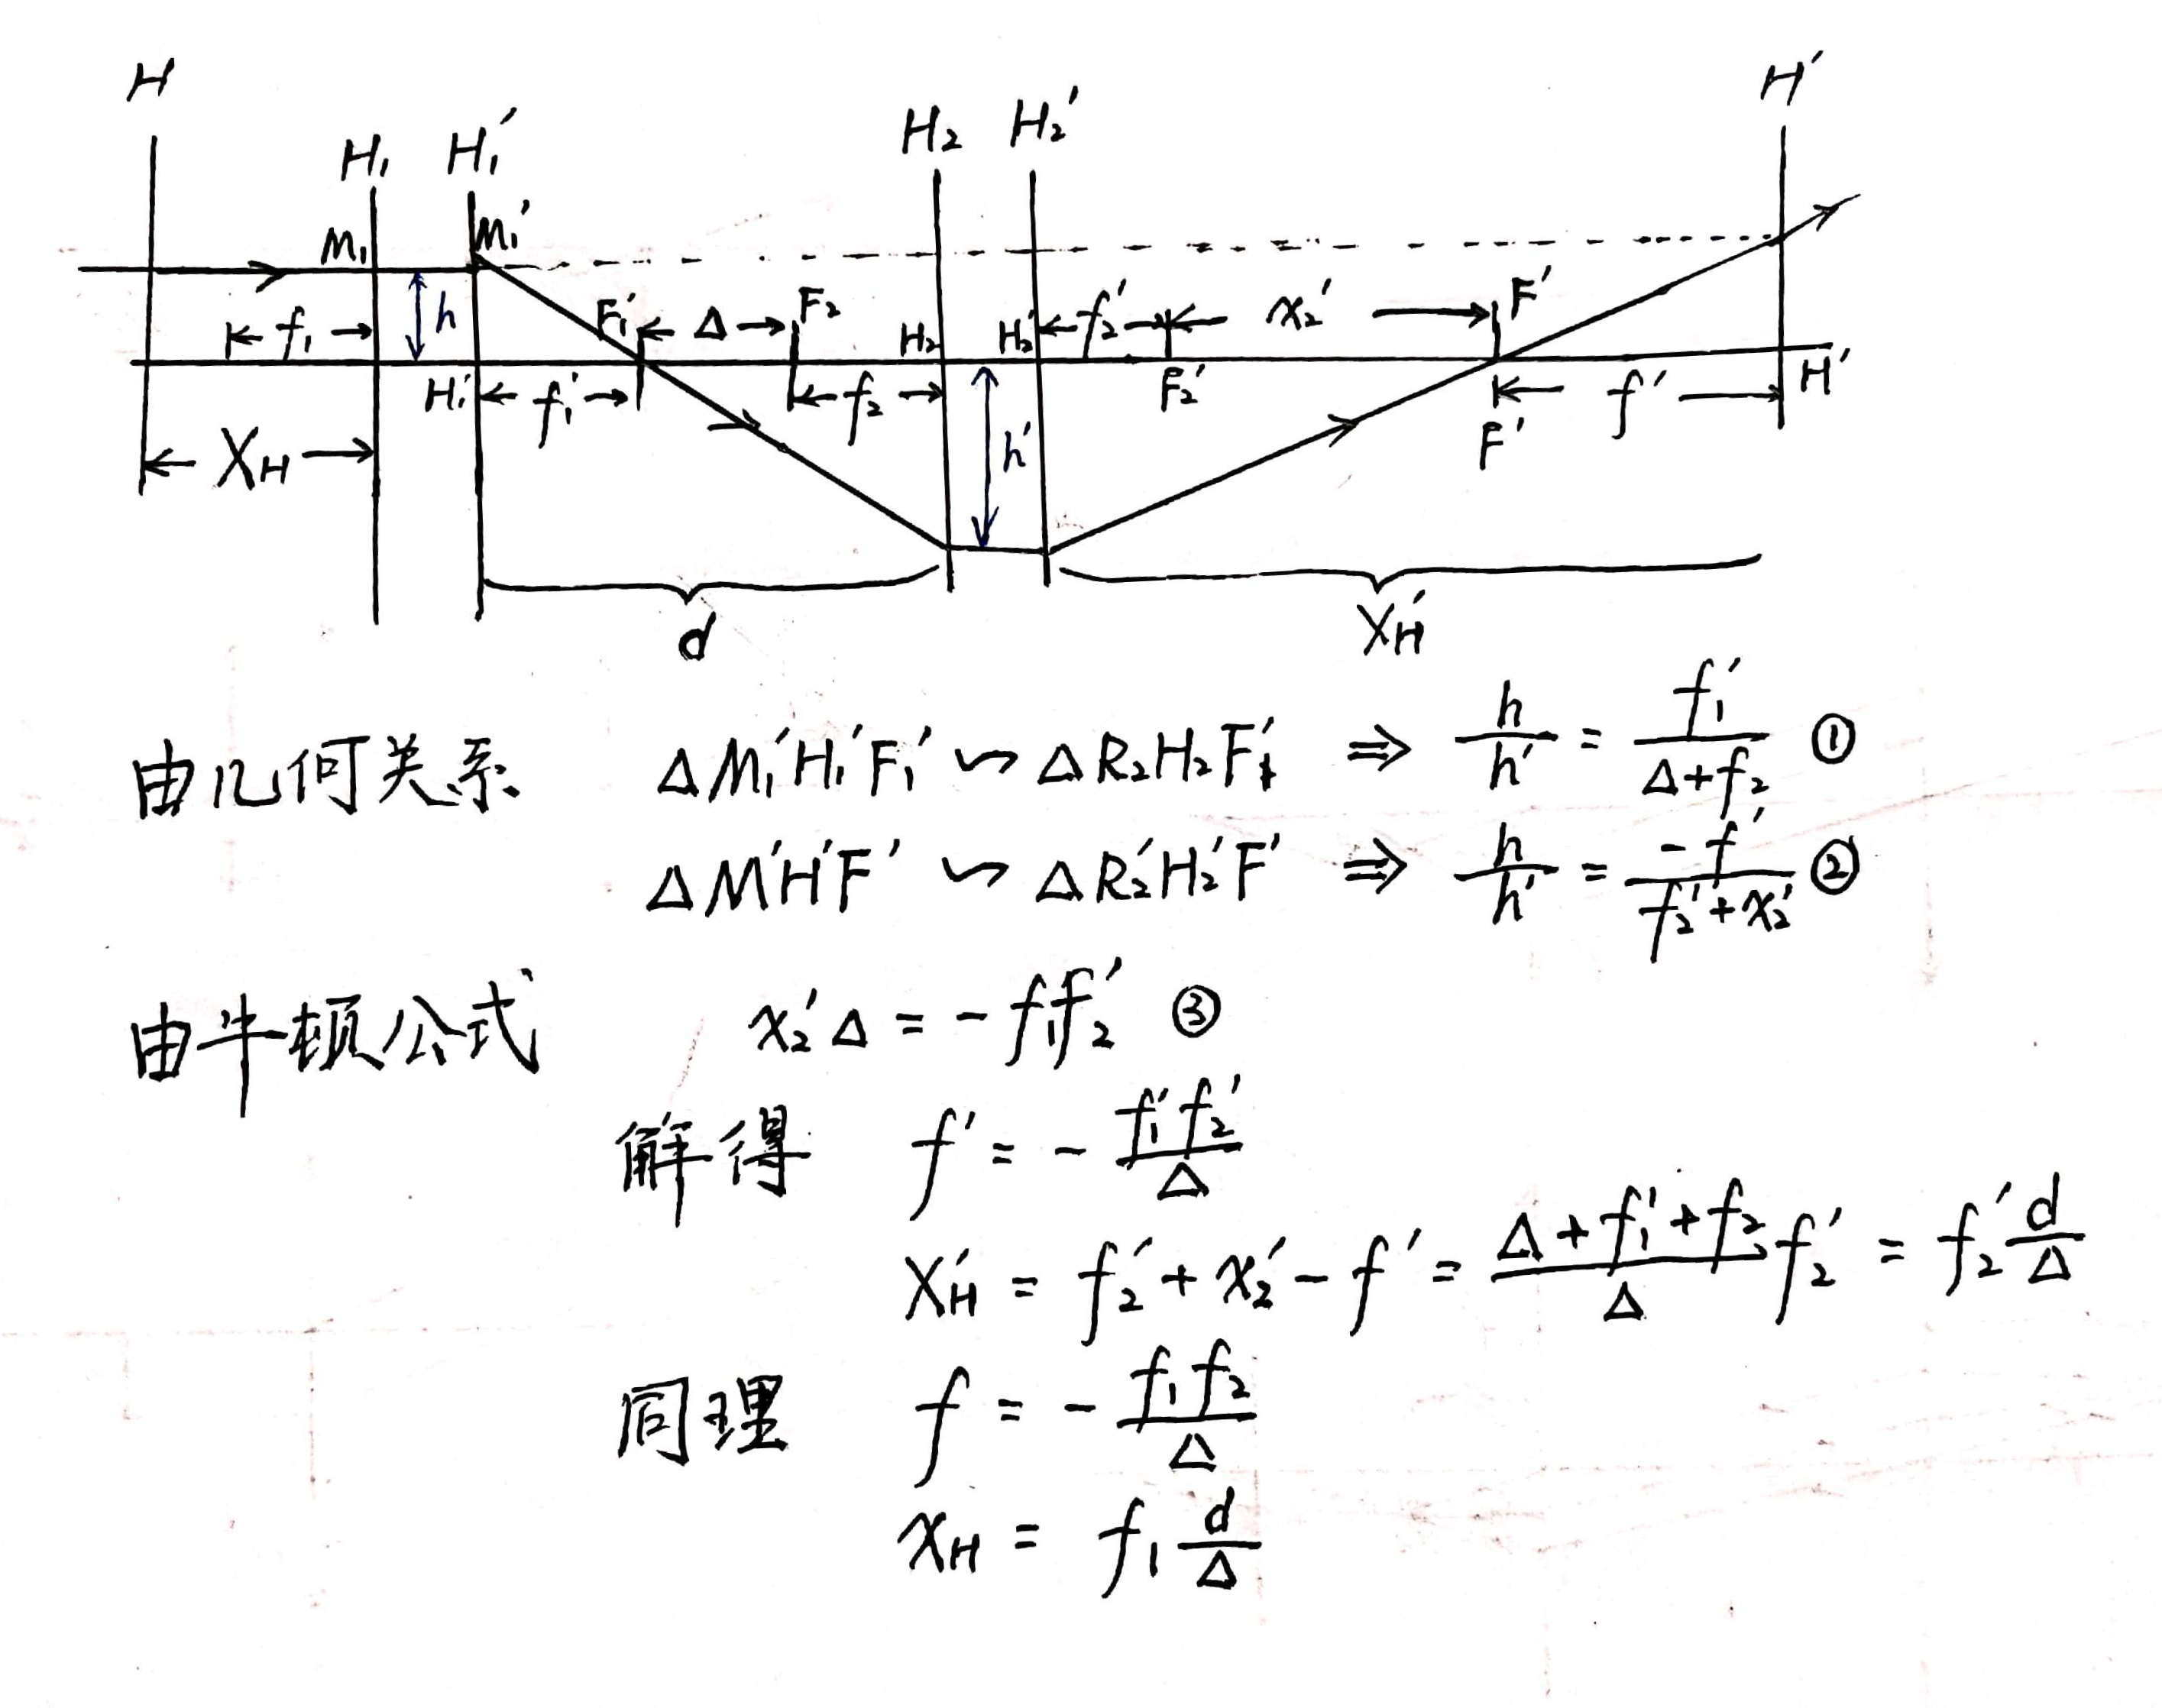 H H'
H₁ H₁' H₂ H₂'
M₁ M₁'
f₁ h F₁' Δ F₂ H₂ H₂' f₂' x₂' F'
H₁' f₁' f₂ h' F₂' F' f' H'
X_H
d X_H'
由几何关系 ΔM₁'H₁'F₁' ∽ ΔR₂H₂F₁' ⇒ h/h' = f₁'/(Δ+f₂) ①
ΔM'H'F' ∽ ΔR₂'H₂'F' ⇒ h/h' = -f'/(f₂'+x₂') ②
由牛顿公式 x₂'Δ = -f₁f₂' ③
解得 f' = - f₁'f₂'/Δ
X_H' = f₂' + x₂' - f' = (Δ+f₁'+f₂)/Δ f₂' = f₂' d/Δ
同理 f = - f₁f₂/Δ
x_H = f₁ d/Δ